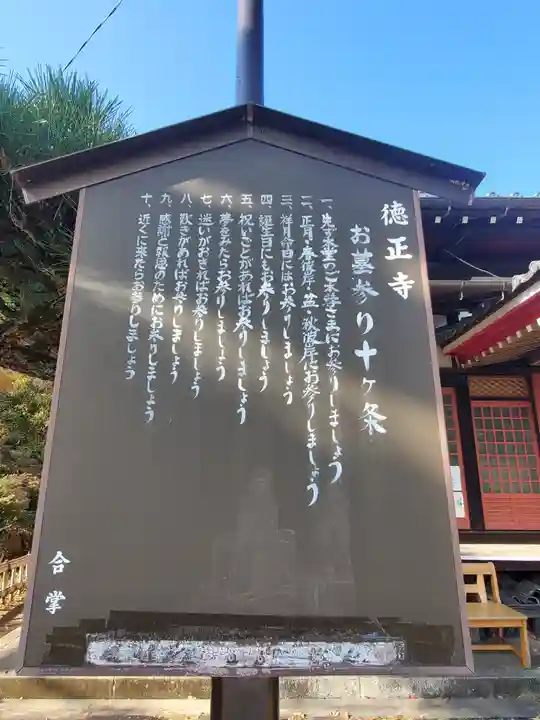 徳正寺
お墓参り十ヶ条
一、先ず本堂のご本尊さまにお参りしましょう
二、正月・春彼岸・盆・秋彼岸にお参りしましょう
三、祥月命日にはお参りしましょう
四、誕生日にもお参りしましょう
五、祝いごとがあればお参りしましょう
六、夢をみたらお参りしましょう
七、迷いがおきればお参りしましょう
八、歎きがあればお参りしましょう
九、感謝と報恩のためにお参りしましょう
十、近くに来たらお参りしましょう
合掌